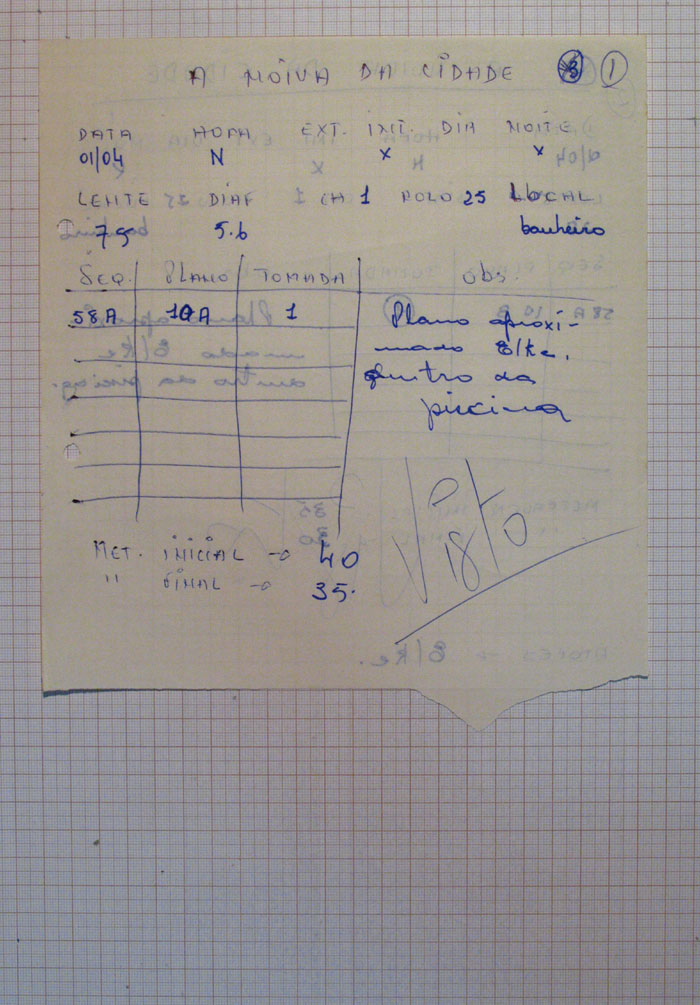 A NOIVA DA CIDADE ①
DATA HORA EXT. INT. DIA NOITE
01/04 N x x
LENTE DIAF CH 1 ROLO 25 LOCAL
75 5.6 banheiro
SEQ. PLANO TOMADA OBS.
58A 10A 1 Plano aproxi-
mado Elke.
dentro da
piscina
Visto
MET. INICIAL → 40
" FINAL → 35.